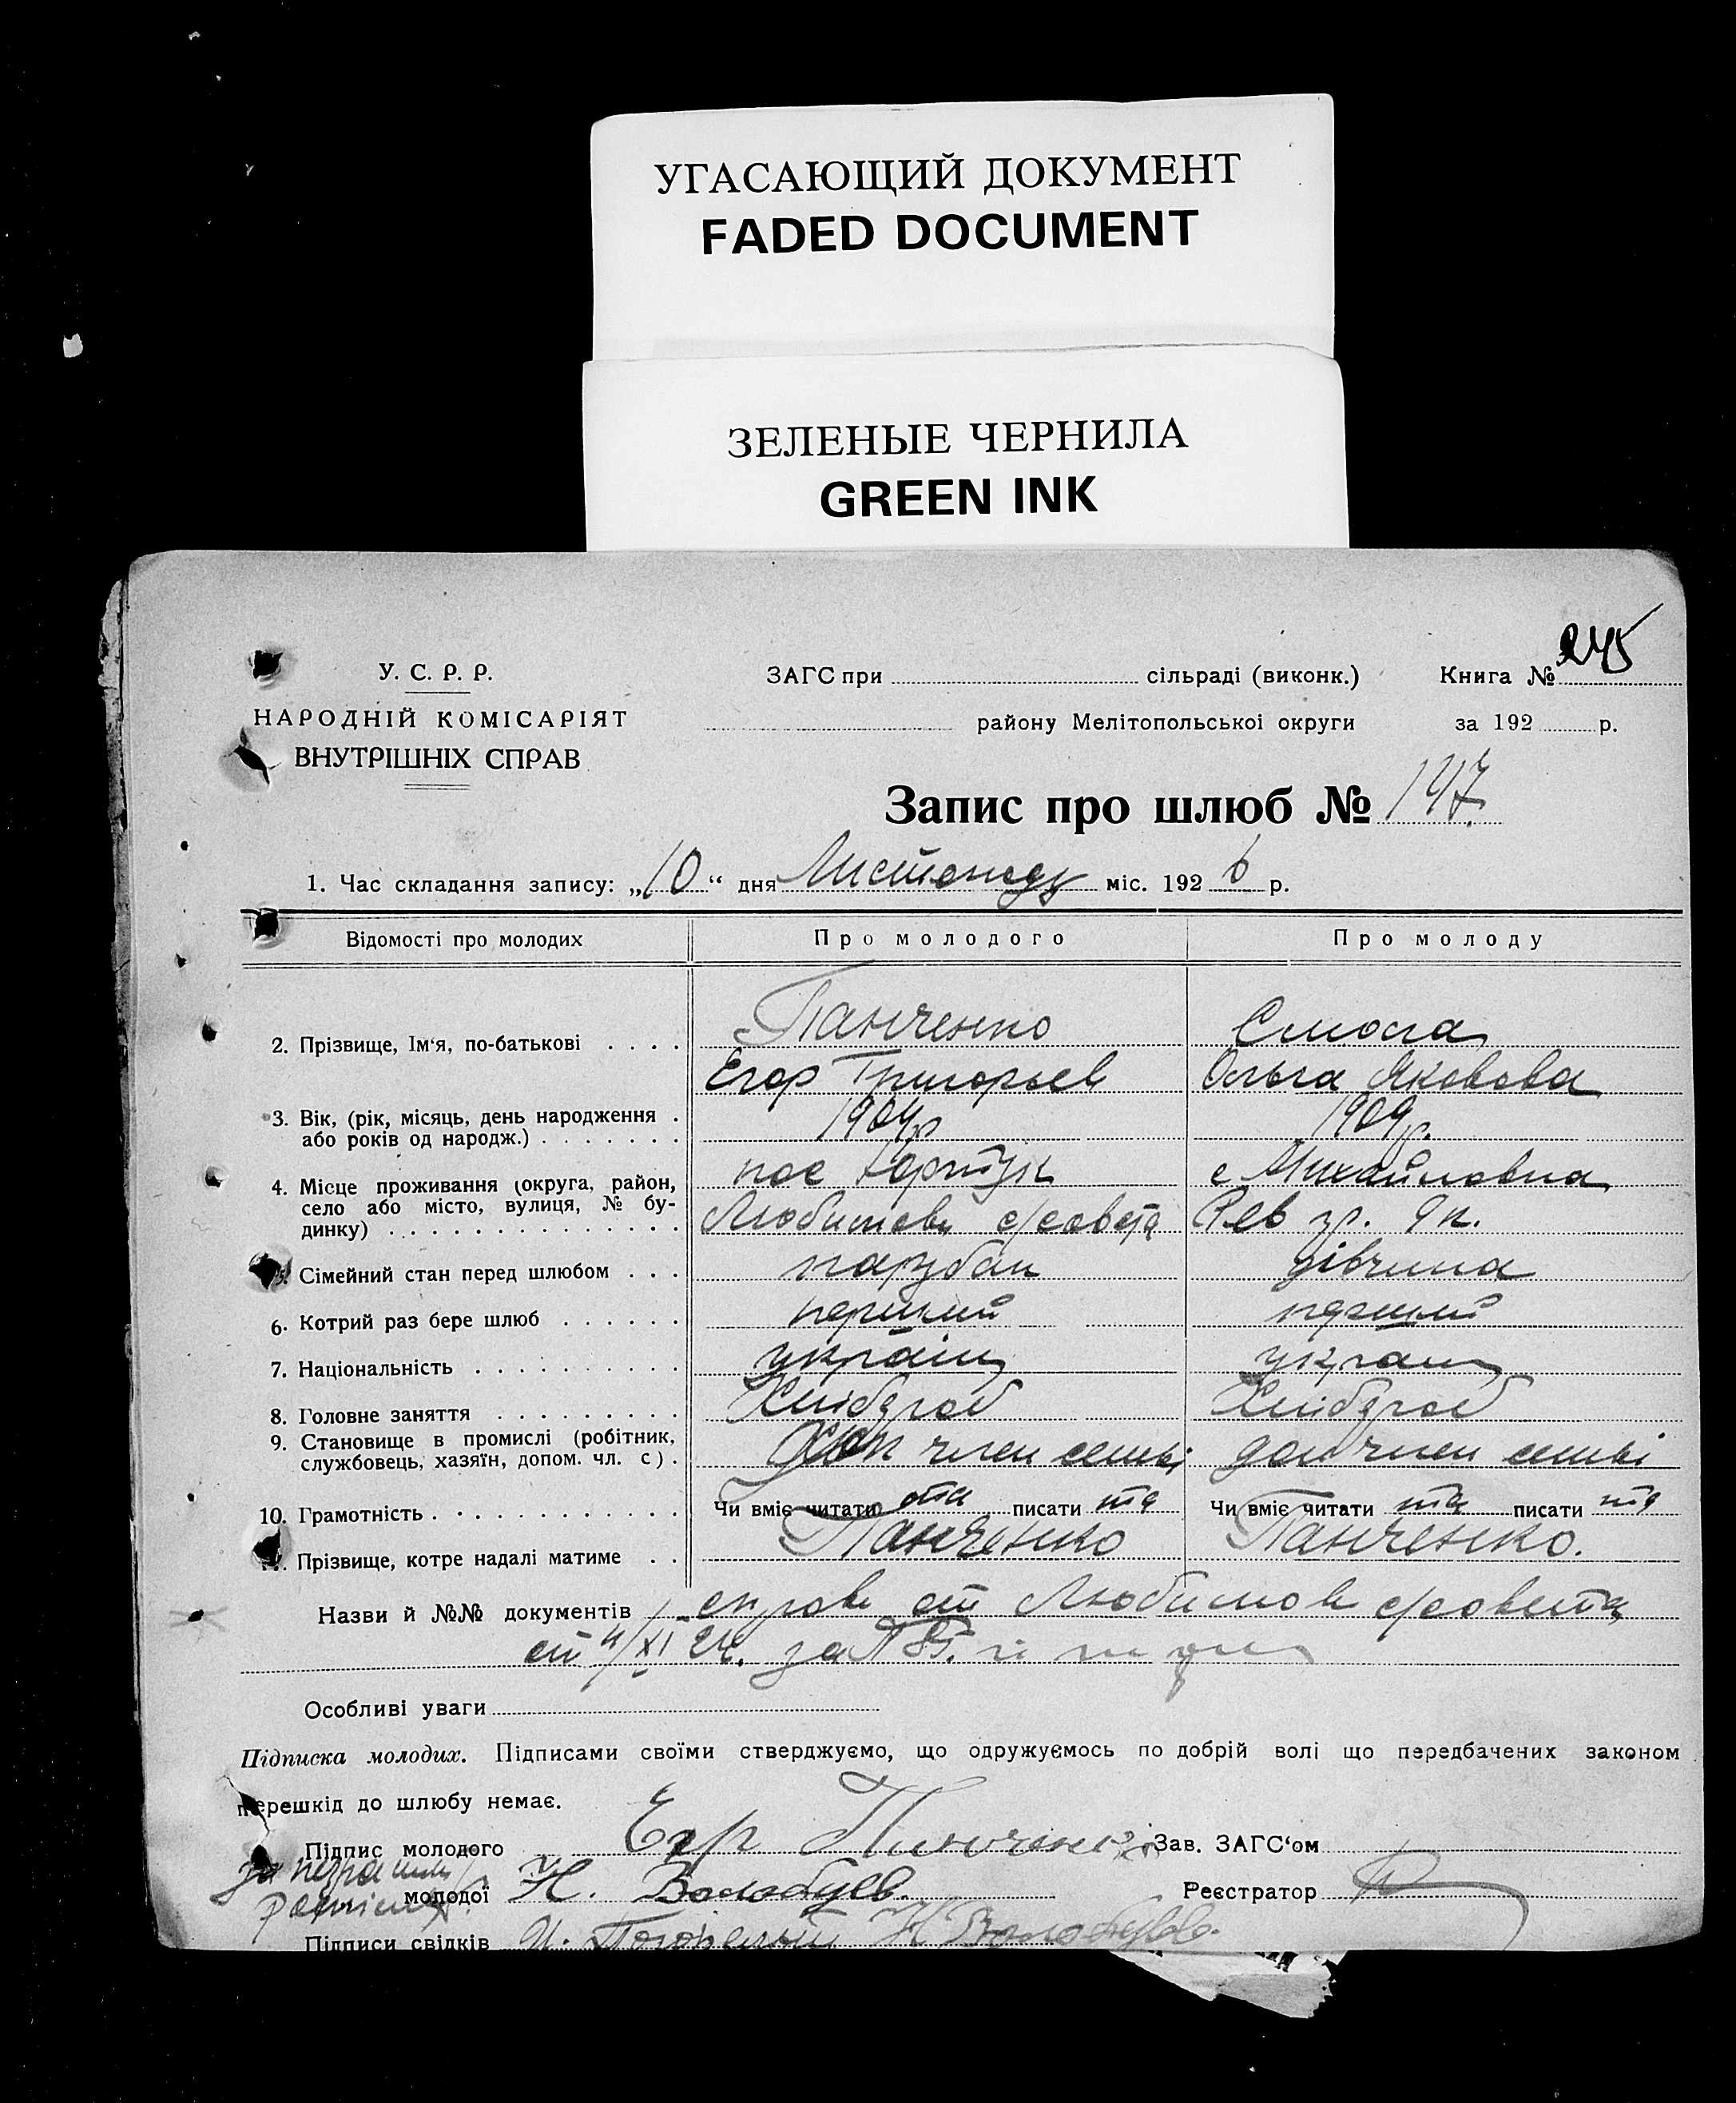 УГАСАЮЩИЙ ДОКУМЕНТ
FADED DOCUMENT
ЗЕЛЕНЫЕ ЧЕРНИЛА
GREEN INK
У. С. Р. Р.
НАРОДНІЙ КОМІСАРІЯТ
ВНУТРІШНІХ СПРАВ
ЗАГС при сільраді (виконк.)
району Мелітопольської округи
Книга № 245
за 192 р.
Запис про шлюб № 147.
1. Час складання запису: „10“ дня Листопаду міс. 1926 р.
Відомості про молодих Про молодого Про молоду
Панченко
2. Прізвище, Ім'я, по-батькові
Егор Григорьев Ольга Яковова
3. Вік, (рік, місяць, день народження 1904р 1909р.
або років од народж.)
4. Місце проживання (округа, район, пос с Михайловка
село або місто, вулиця, № бу-
динку) Любимов с/совета Рев гр.
5. Сімейний стан перед шлюбом парубак дівчина
6. Котрий раз бере шлюб перший перший
7. Національність україн україн
8. Головне заняття Хлібороб Хлібороб
9. Становище в промислі (робітник,
службовець, хазяїн, допом. чл. с). член семьі доп член семьі
10. Грамотність Чи вміє читати писати Чи вміє читати писати
Прізвище, котре надалі матиме Панченко Панченко.
Назви й №№ документів справ от Любимов с/совета
от 4/XI за №
Особливі уваги
Підписка молодих. Підписами своїми стверджуємо, що одружуємось по добрій волі що передбачених законом
перешкід до шлюбу немає.
Підпис молодого Егр Панченко Зав. ЗАГС'ом
молодої Н. Волобуев. Реєстратор
Підписи свідків И. Погорелый Н Волобуев.